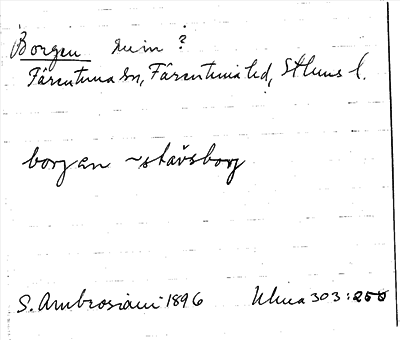 Borgen ruin ?
Färentuna sn, Färentuna hd, Sthlms l.
borjan ~ståvsborg
S. Ambrosiani 1896 Ulma 303:250